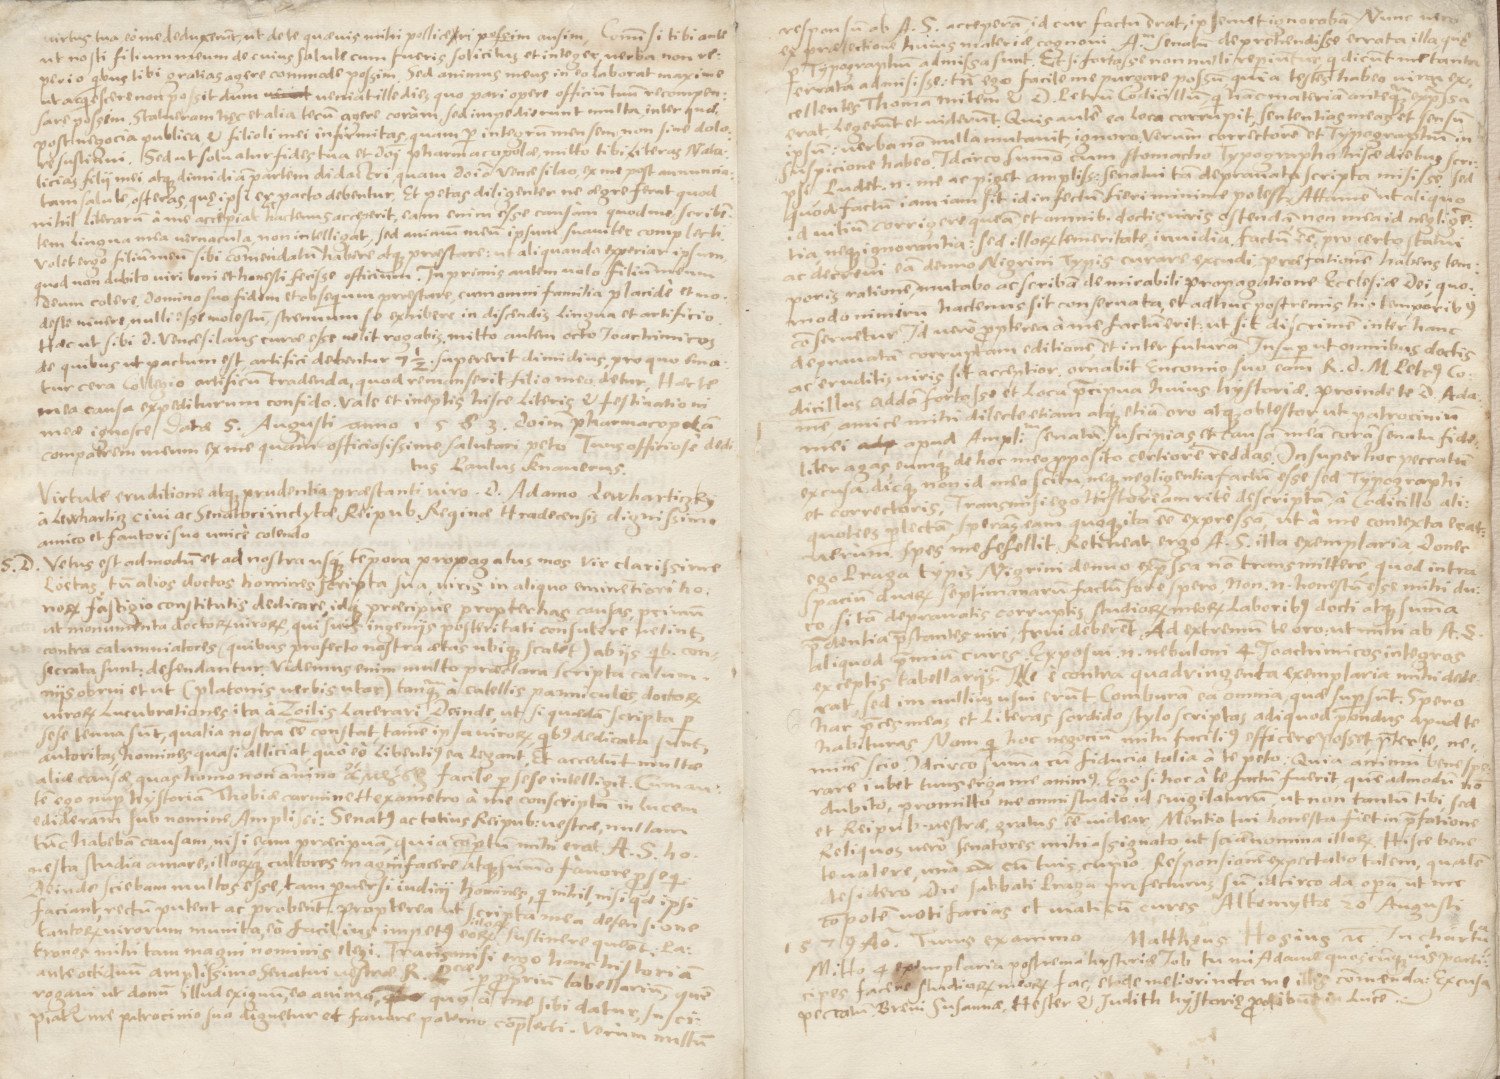 virtus tua, eò me deduxerunt, ut de te quævis mihi polliceri possim ausim. Cum si tibi ante
ut nosti filium meum de cuius salute cum fueris solicitus et integer, verba non re-
perio qbus tibi gratias agere commode possim. Sed animus meus in eo laborat maxime
ut acquiescere non possit dum veniat ille dies quo pari opere officium tuum recompen:
sare possem. Statueram hæc et alia tecum agere coràm, sed impedierunt multa, inter quæ
post negocia publica & filioli mei infirmitas, quam p integrum mensem, non sine dolo:
re sustinui. Sed ut solvatur fides tua et Dni pharmacopolæ, mitto tibi literas Nata:
licias filij mei atq dimidiam partem didactri, quam Doio Vencesilao, ex me post annuncia:
tam salutem, ostendas, que ipsi ex pacto debentur. Et petas diligenter ne ægre ferat quod
nihil literarum à me hactenus acceperit, eam enim esse causam quod me, scriben
tem lingua mea vernacula, non intelligat, sed animum meum ipsum suauiter complecti.
Volet ergo filium meum sibi comendatum habere atq præstare: ut aliquando experiar ipsum
quod non dubito viri boni et honesti fecisse officium. Inprimis autem volo filium meum
Deum colere, Domino suo fidem et obsequium præstare, cum omni familia placide et mo-
deste vivere, nulli esse molestum, strenuum se exhibere in discendis lingua et artificio.
Hæc ut sibi D. Vencesilaus curæ esse velit rogabis, mitto autem octo Joachimicos
de quibus ut pactum est artifici debentur 7 1/2. supererit dimidius, pro quo ema:
tur cera Collegio artificum tradenda, quod remanserit filio meo detur, Hæc te
mea causa expediturum confido. Vale et ineptis hisce literis & festinationi
meæ ignosce. Datæ 5. Augusti anno 1583. Doim pharmacopolam
compatrem meum ex me quàm officiosissime salutari peto. Tuus officiose dedi
tus Paulus
Virtute eruditione atq prudentia præstanti viro. D. Adamo
à civi ac Senatori inclytæ Reipub. Reginæ Hradecensis dignissimo
amico et fautori suo unicè colendo
S. D. Vetus est admodum et ad nostra usq tempora propagatus mos Vir clarissime
Poëtas, tum alios doctos homines scripta sua, viris in aliquo eminentiori ho:
norum fastigio constitutis dedicare, idq præcipue propter has causas, primum
ut monumenta doctorum virorum, qui suis ingenijs posteritati consulere velint,
contra calumniatores (quibus profecto nostra ætas ubiq scatet) ab ijs qb. con-
secrata sunt: defendantur. Videmus enim multo præclara scripta calum-
nijs obrui et ut (platonis verbis utar) tanq à catellis panniculos, doctorum
virorum lucubrationes ita à Zoilis lacerari. Deinde, ut si quædam scripta p
sese tenua sint, qualia nostra ee constat, tame ipsa virorum, qbus dedicata sunt,
autoritas, homines quasi alliciat, quò eò libentius ea legant. Et accedunt multæ
aliæ causæ, quas homo non facile p sese intelligit. Cum au:
te ego nup hystoriam Thobiæ carmine Hexametro à me conscriptam in lucem
edideram sub nomine Ampliss: Senatus ac totius Reipub: vestræ, nullam
tunc habebam causam, nisi eam præcipuam, quia comptum mihi erat A. S. ho-
nesta studia amare, illorumq cultores magnifacere atq summo favore psequi.
Deinde sciebam multos esse, tam puersi iudicij homines, q nihil, nisi qd ipsi
faciant, rectum putent ac probent. Propterea ut scripta mea defensione
tantorum virorum munita, eò facilius impetus eorum sustinere queant. Pa:
tronos mihi tam magni nominis elegi. Transmisi ergo hanc historiam
ante octiduum amplissimo Senatui vestræ R. p pprium tabellarium, quem
rogavi ut donum illud exiguum, eo animo, quo à me sibi datur, susci:
piat & me patrocinio suo dignetur et favore paterno complecti. Verùm nullum
responsum ab A. S. acceperam id cur factum erat, ipsemet ignorabam. Nunc vero
ex prælectione huius materiæ cognoui. A. senatum deprehendisse errata illa, quæ
p Typographum admissa sunt. Et si fortasse non nulli repiuntur, q dicunt me tanta
errata admisisse: tum ego facile me purgare possum quia testes habeo viros ex:
cellentes Thomam Mitem & D. Petrum Codicillum, q hanc materiam anteq expressa
erat legerunt et viderunt. Quis aute ea loca corrupit, sententias meas et sensum
ipsum: verba non nulla mutauit, ignoro. Verùm correctore et Typographum in
suspicione habeo. Idcirco summo cum stomacho Typographo hisce diebus scri-
psi. Pudet .n. me ac piget ampliss: senatui tam deprauata scripta misisse, sed
quod factum iam iam sit id infectum fieri minime potest. Attame ut aliquo
id vitium corrigere queam et omnib. doctis viris ostendam non mea id neglige-
tia, neq ignorantia: sed illorum temeritate, invidia, factum ee, pro certo statui
ac decreui eam denuo Nigrini Typis curare excudi: præfatione habens tem:
poris ratione, mutabo ac scribam de mirabili propagatione Ecclesiæ Dei quo:
modo nimirum hactenus sit conservata, et adhuc postremis his temporibus
conseruetur. Id vero propterea à me factum erit: ut sit discrimen inter hanc
deprauatam corruptam editionem et inter futuram. Insup ut omnibus doctis
ac eruditis viris sit acceptior, ornabit Encomio suo eam R. d. M. Petrus Co:
dicillus, addam fortasse et loca præcipua huius hystoriæ. Proinde te D. Ada:
me amice mihi dilecte etiam atq etiam oro atq obtestor ut patrocinium
mei apud Ampli: senatum suscipias et causam meam coram senatu fide-
liter agas, eumq de hoc meo pposito certiore reddas. Insuper hoc peccatum
excusa, dicq non id mea scitu, neq negligentia factum esse, sed Typographi
et correctoris. Transmisi ego Historiam ritè descriptam, à Codicillo ali:
quoties plectam, sperans eam quoq ita ee expressam, ut à me contexta erat:
verum spes me fefellit. Retineat ergo A. S. illa exemplaria, Donec
ego Pragæ typis Nigrini denuo expressa non transmittere, quod intra
spacium duarum septimanarum factum fore spero. Non .n. honestum esse mihi du:
co si tam deprauatis corruptis studiorum meorum laboribus docti atq summa
prudentia præstantes viri, frui deberent. Ad extremum te oro: ut mihi ab A. S.
aliquod præmium cures. Exposui .n. nebuloni 4 Joachimicos integros
exceptis tabellarijs. Ille è contra quadringenta exemplaria mihi dede
rat, sed im nullius usui erunt. Comburam ea omnia, quæ supersunt. Spero
has preces meas et literas sordido stylo scriptas ad aliquod pondus apud te
habituras. Nam q hoc negocium mihi facilius efficere posset præter te, ne-
minem scio. Idcirco summa cum fiducia talia à te peto: Quia animum bene spe-
rare iubet tuus erga me animus. Ego si hoc à te factum fuerit, quem admodum non
dubito, promitto me omni studio id euigilaturum, ut non tantum tibi, sed
et Reipub. vestræ, gratus ee videar. Mentio tui honesta fiet in præfatione
Reliquos vero senatores mihi assignato ut sciam nomina illorum. Hisce bene
te valere, unà cum tuis, cupio. Responsionem expectabo talem, qualem
desidero. Die sabbati Praga profecturus sum, idcirco da opam ut me
compotem voti facias et viaticum cures. Altomyttæ 20 Augusti
1579 Ao. Tuus ex animo Matthæus Hosius ac. In charta
Mitto 4 exemplaria postrema hystoriæ Iobi tu mi Adame quoscunq
cipes facere studiorum meorum fac, et de meliori nota me illis comenda: Excusa
pectatum. Breui Susannæ, Hester & Judith hystoriæ prodibunt in luce.